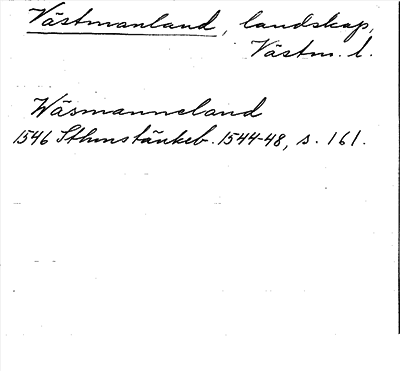 Västmanland, landskap,
Västm. l.
Wäsmanneland
1546 Sthms tänkeb. 1544-48, s. 161.